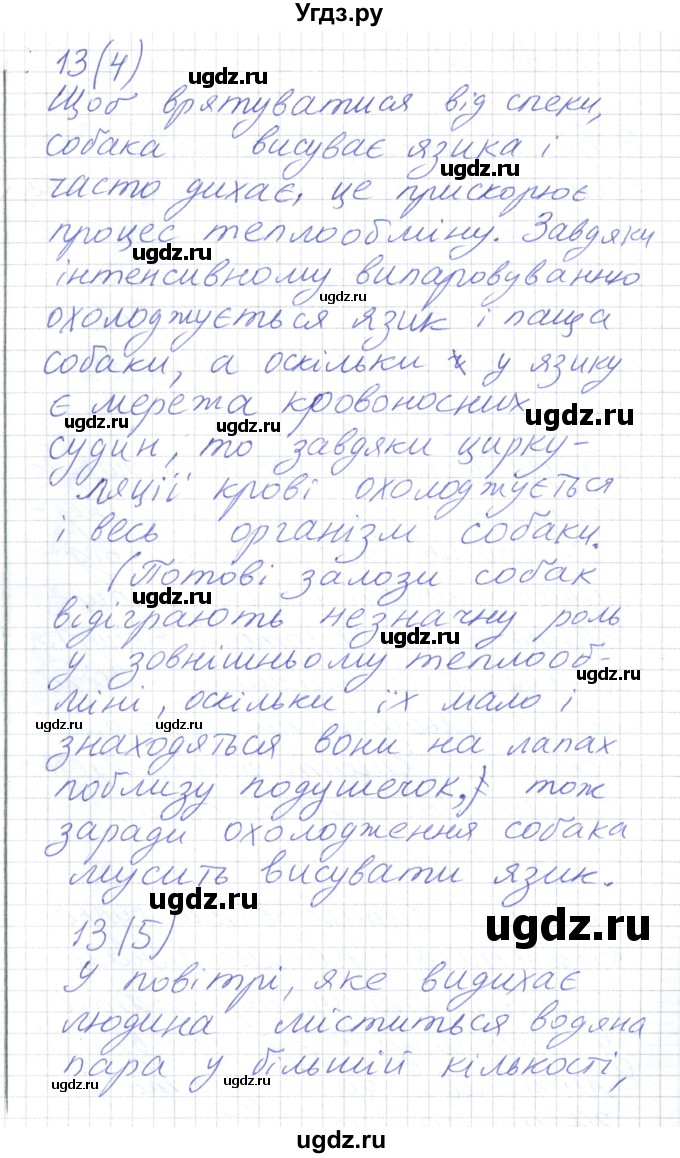 Угдз.ру
13(4)
ugdz.ru
Щоб врятуватися від спеки,
собака висуває язика і
ugdz.ru
часто дихає, це прискорює
процес теплообміну. Завдяки
ugdz.ru
інтенсивному випаровуванню
ugdz.ru
охолоджується язик і паща
собаки, а оскільки у язику
є мережа кровоносних
ugdz.ru ugdz.ru ugdz.ru
судин, то завдяки цирку-
ляції крові охолоджується
і весь організм собаки.
(Потові залози собак
ugdz.ru
відіграють незначну роль
ugdz.ru
у зовнішньому теплооб-
міні, оскільки їх мало і
ugdz.ru ugdz.ru ugdz.ru
знаходяться вони на лапах
поблизу подушечок,) тож
заради охолодження собака
мусить висувати язик.
ugdz.ru
13(5) ugdz.ru
У повітрі, яке видихає
людина міститься водяна
пара у більшій кількості,
ugdz.ru ugdz.ru ugdz.ru
ugdz.ru